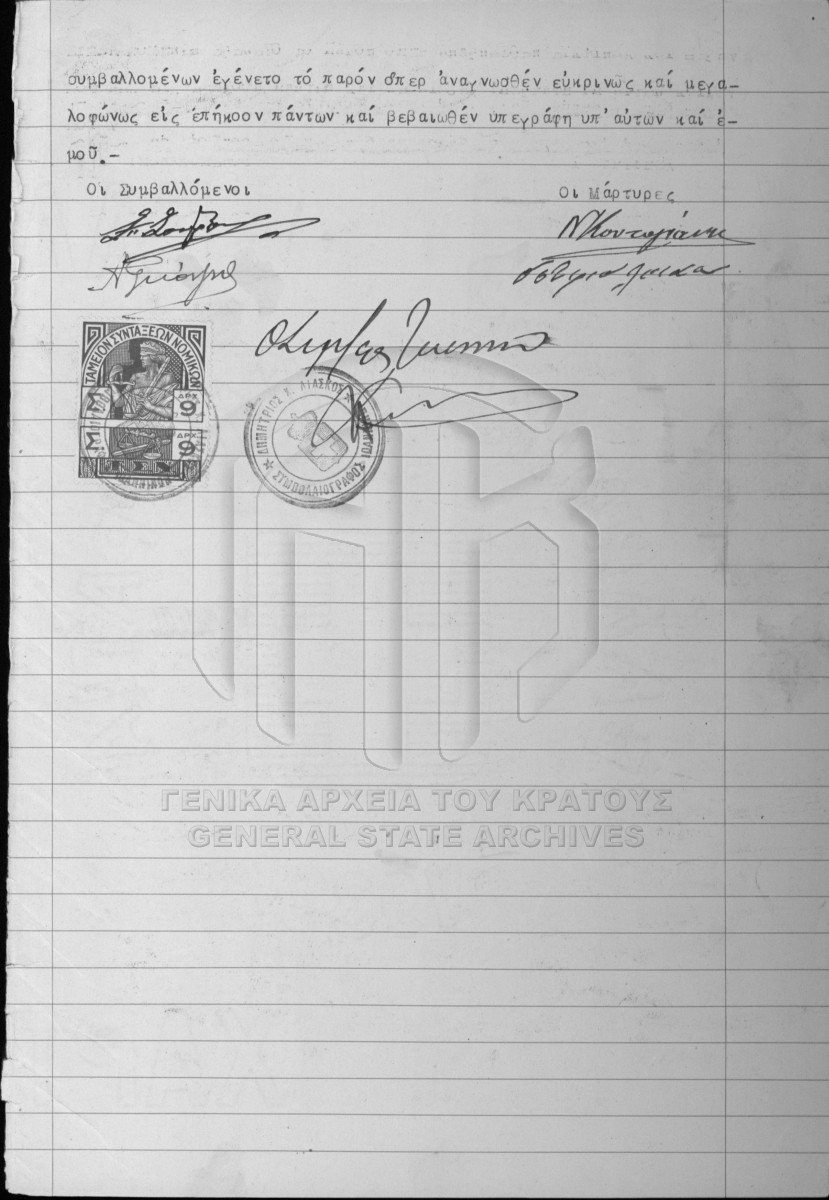 συμβαλλομένων ἐγένετο τό παρόν ὅπερ ἀναγνωσθέν εὐκρινῶς καί μεγα-
λοφώνως εἰς ἐπήκοον πάντων καί βεβαιωθέν ὑπεγράφη ὑπ'αὐτῶν καί ἐ-
μοῦ.-
Οι Συμβαλλόμενοι
Οι Μάρτυρες
ΤΑΜΕΙΟΝ ΣΥΝΤΑΞΕΩΝ ΝΟΜΙΚΩΝ
Μ ΔΡΧ 9
Μ ΔΡΧ 9
Τ Σ Ν
ΔΗΜΗΤΡΙΟΣ ΛΙΑΣΚΟΣ
ΣΥΜΒΟΛΑΙΟΓΡΑΦΟΣ
ΓΕΝΙΚΑ ΑΡΧΕΙΑ ΤΟΥ ΚΡΑΤΟΥΣ
GENERAL STATE ARCHIVES